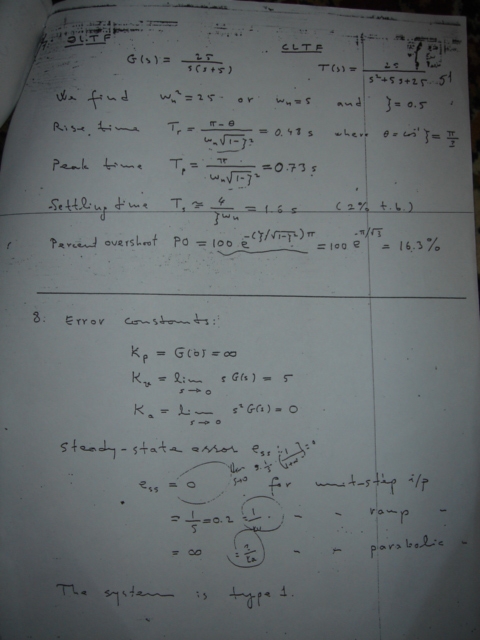 OLTF CLTF
G(s) = 25 / s(s+5) T(s) = 25 / s²+5s+25
We find ωn² = 25 or ωn = 5 and ζ = 0.5
Rise time Tr = π-θ / ωn√1-ζ² = 0.48 s where θ = cos⁻¹ ζ = π/3
Peak time Tp = π / ωn√1-ζ² = 0.73 s
Settling time Ts ≈ 4 / ζωn = 1.6 s (2% t.b.)
Percent overshoot PO = 100 e^-(ζ/√1-ζ²)π = 100 e^-π/√3 = 16.3%
8. Error constants:
Kp = G(0) = ∞
Kv = lim s→0 s G(s) = 5
Ka = lim s→0 s² G(s) = 0
Steady-state error ess:
ess = 0 for unit-step i/p
= 1/5 = 0.2 = 1/kv " " ramp "
= ∞ = 1/ka " " parabolic "
The system is type 1.